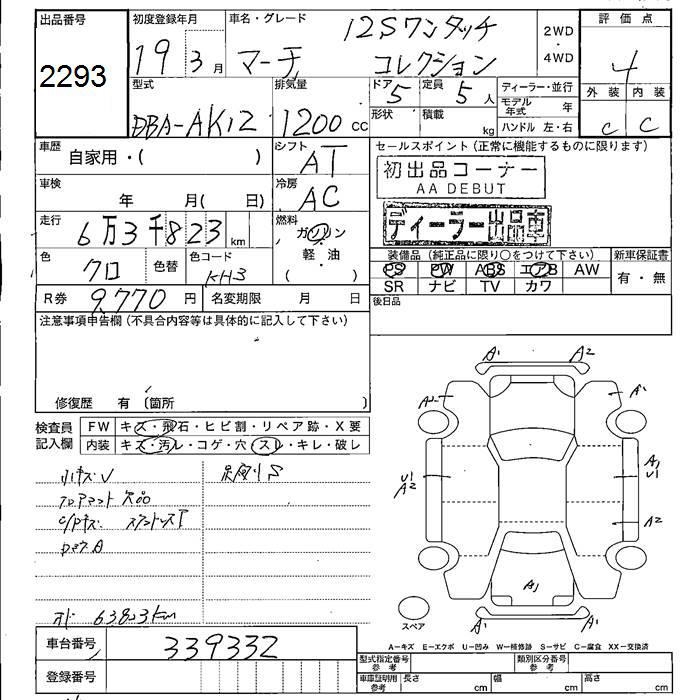 出品番号 2293
初度登録年月 19 3月
車名・グレード 12Sワンタッチ
マーチ コレクション
2WD・4WD
評価点 4
外装 内装
C C
型式 DBA-AK12
排気量 1200 cc
ドア 5 定員 5人
形状 積載 kg
ディーラー・並行
モデル年式 年
ハンドル 左・右
車歴 自家用・( )
シフト AT
セールスポイント(正常に機能するものに限ります)
初出品コーナー
AA DEBUT
ディーラー出品車
車検 年 月( 日)
冷房 AC
走行 6万3千823km
燃料 ガソリン
軽・油
( )
色 クロ 色替 色コード KH3
装備品(純正品に限り○をつけて下さい) 新車保証書
PS PW ABS エアB AW 有・無
SR ナビ TV カワ
R券 9,770円 名変期限 月 日
後日品
注意事項申告欄(不具合内容等は具体的に記入して下さい)
修復歴 有 (箇所 )
検査員記入欄 FW キズ・飛石・ヒビ割・リペア跡・X要
内装 キズ・汚レ・コゲ・穴・スレ・キレ・破レ
小キズU
フロアマット欠品
C/Pキズ
63823km
A1 A2
A2 A1
U1 A2
A1 U1
A2
A1
A1 A1
スペア
A−キズ E−エクボ U−凹み W−補修跡 S−サビ C−腐食 XX−交換済
車台番号 339332
登録番号
型式指定番号 参考 類別区分番号 参考
車庫証明用 参考 長さ cm 幅 cm 高さ cm